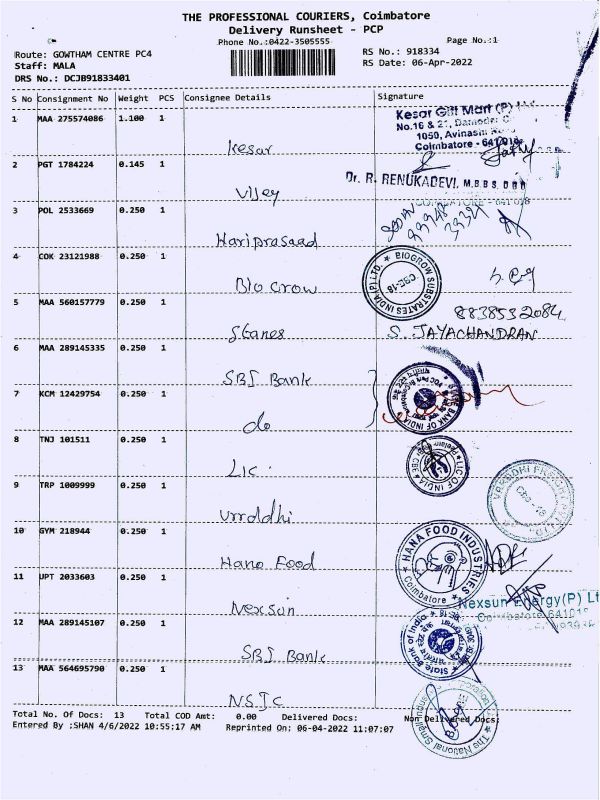 THE PROFESSIONAL COURIERS, Coimbatore
Delivery Runsheet - PCP
Phone No.:0422-3505555
Page No.:1
Route: GOWTHAM CENTRE PC4
RS No.: 918334
Staff: MALA
RS Date: 06-Apr-2022
DRS No.: DCJB91833401
S No Consignment No Weight PCS Consignee Details Signature
1 MAA 275574086 1.100 1
Kesar
Kesar Gift Mart (P)
No.16 & 21, Damodar C
1050, Avinashi
Coimbatore - 641018
2 PGT 1784224 0.145 1
Vijey
Dr. R. RENUKADEVI. M.B.B.S.
COIMBATORE - 641 018
3 POL 2533669 0.250 1
Hariprasaad
4 COK 23121988 0.250 1
Bio Grow
BIOGROW SUBSTRATES INDIA (P) LTD.
CBC-18
5 MAA 560157779 0.250 1
8838532084
Stanes
S. JAYACHANDRAN
6 MAA 289145335 0.250 1
SBI Bank
7 KCM 12429754 0.250 1
do
STATE BANK OF INDIA
8 TNJ 101511 0.250 1
LIC.
LIC OF INDIA
9 TRP 1009999 0.250 1
Vrrddhi
10 GYM 218944 0.250 1
Hana Food
HANA FOOD INDUSTRIES
Coimbatore
11 UPT 2033603 0.250 1
Nexsun
Nexsun Energy(P) Lt
Coimbatore 641018
12 MAA 289145107 0.250 1
SBI Bank
State Bank of India
13 MAA 564695790 0.250 1
NSIC
The National Small
Total No. Of Docs: 13 Total COD Amt: 0.00 Delivered Docs: Non Delivered Docs:
Entered By :SHAN 4/6/2022 10:55:17 AM Reprinted On: 06-04-2022 11:07:07